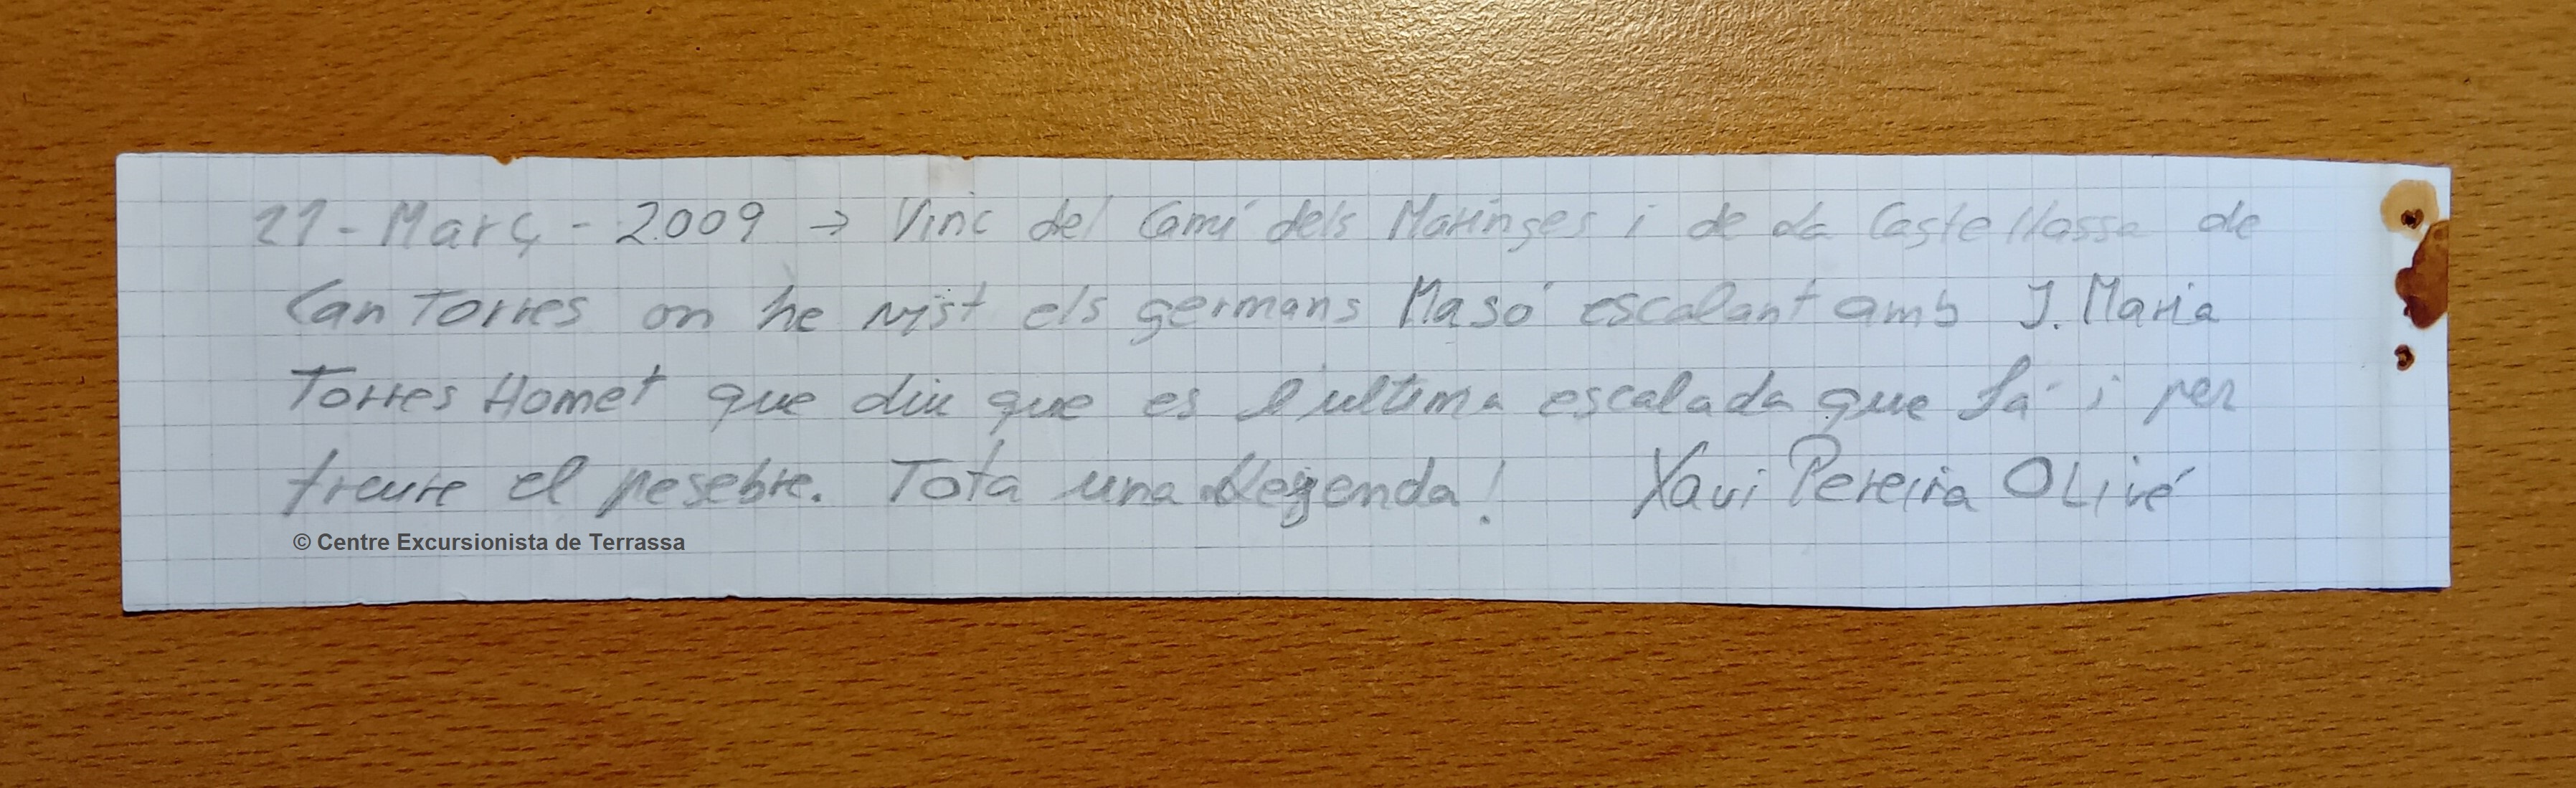 21 - Març - 2009 → Vinc del Camí dels Matinges i de la Castellassa de
Can Torres on he vist els germans Masó escalant amb J. Maria
Torres Homet que diu que es l'ultima escalada que fá i per
treure el pesebre. Tota una Llegenda! Xavi Pereira Olivé
© Centre Excursionista de Terrassa